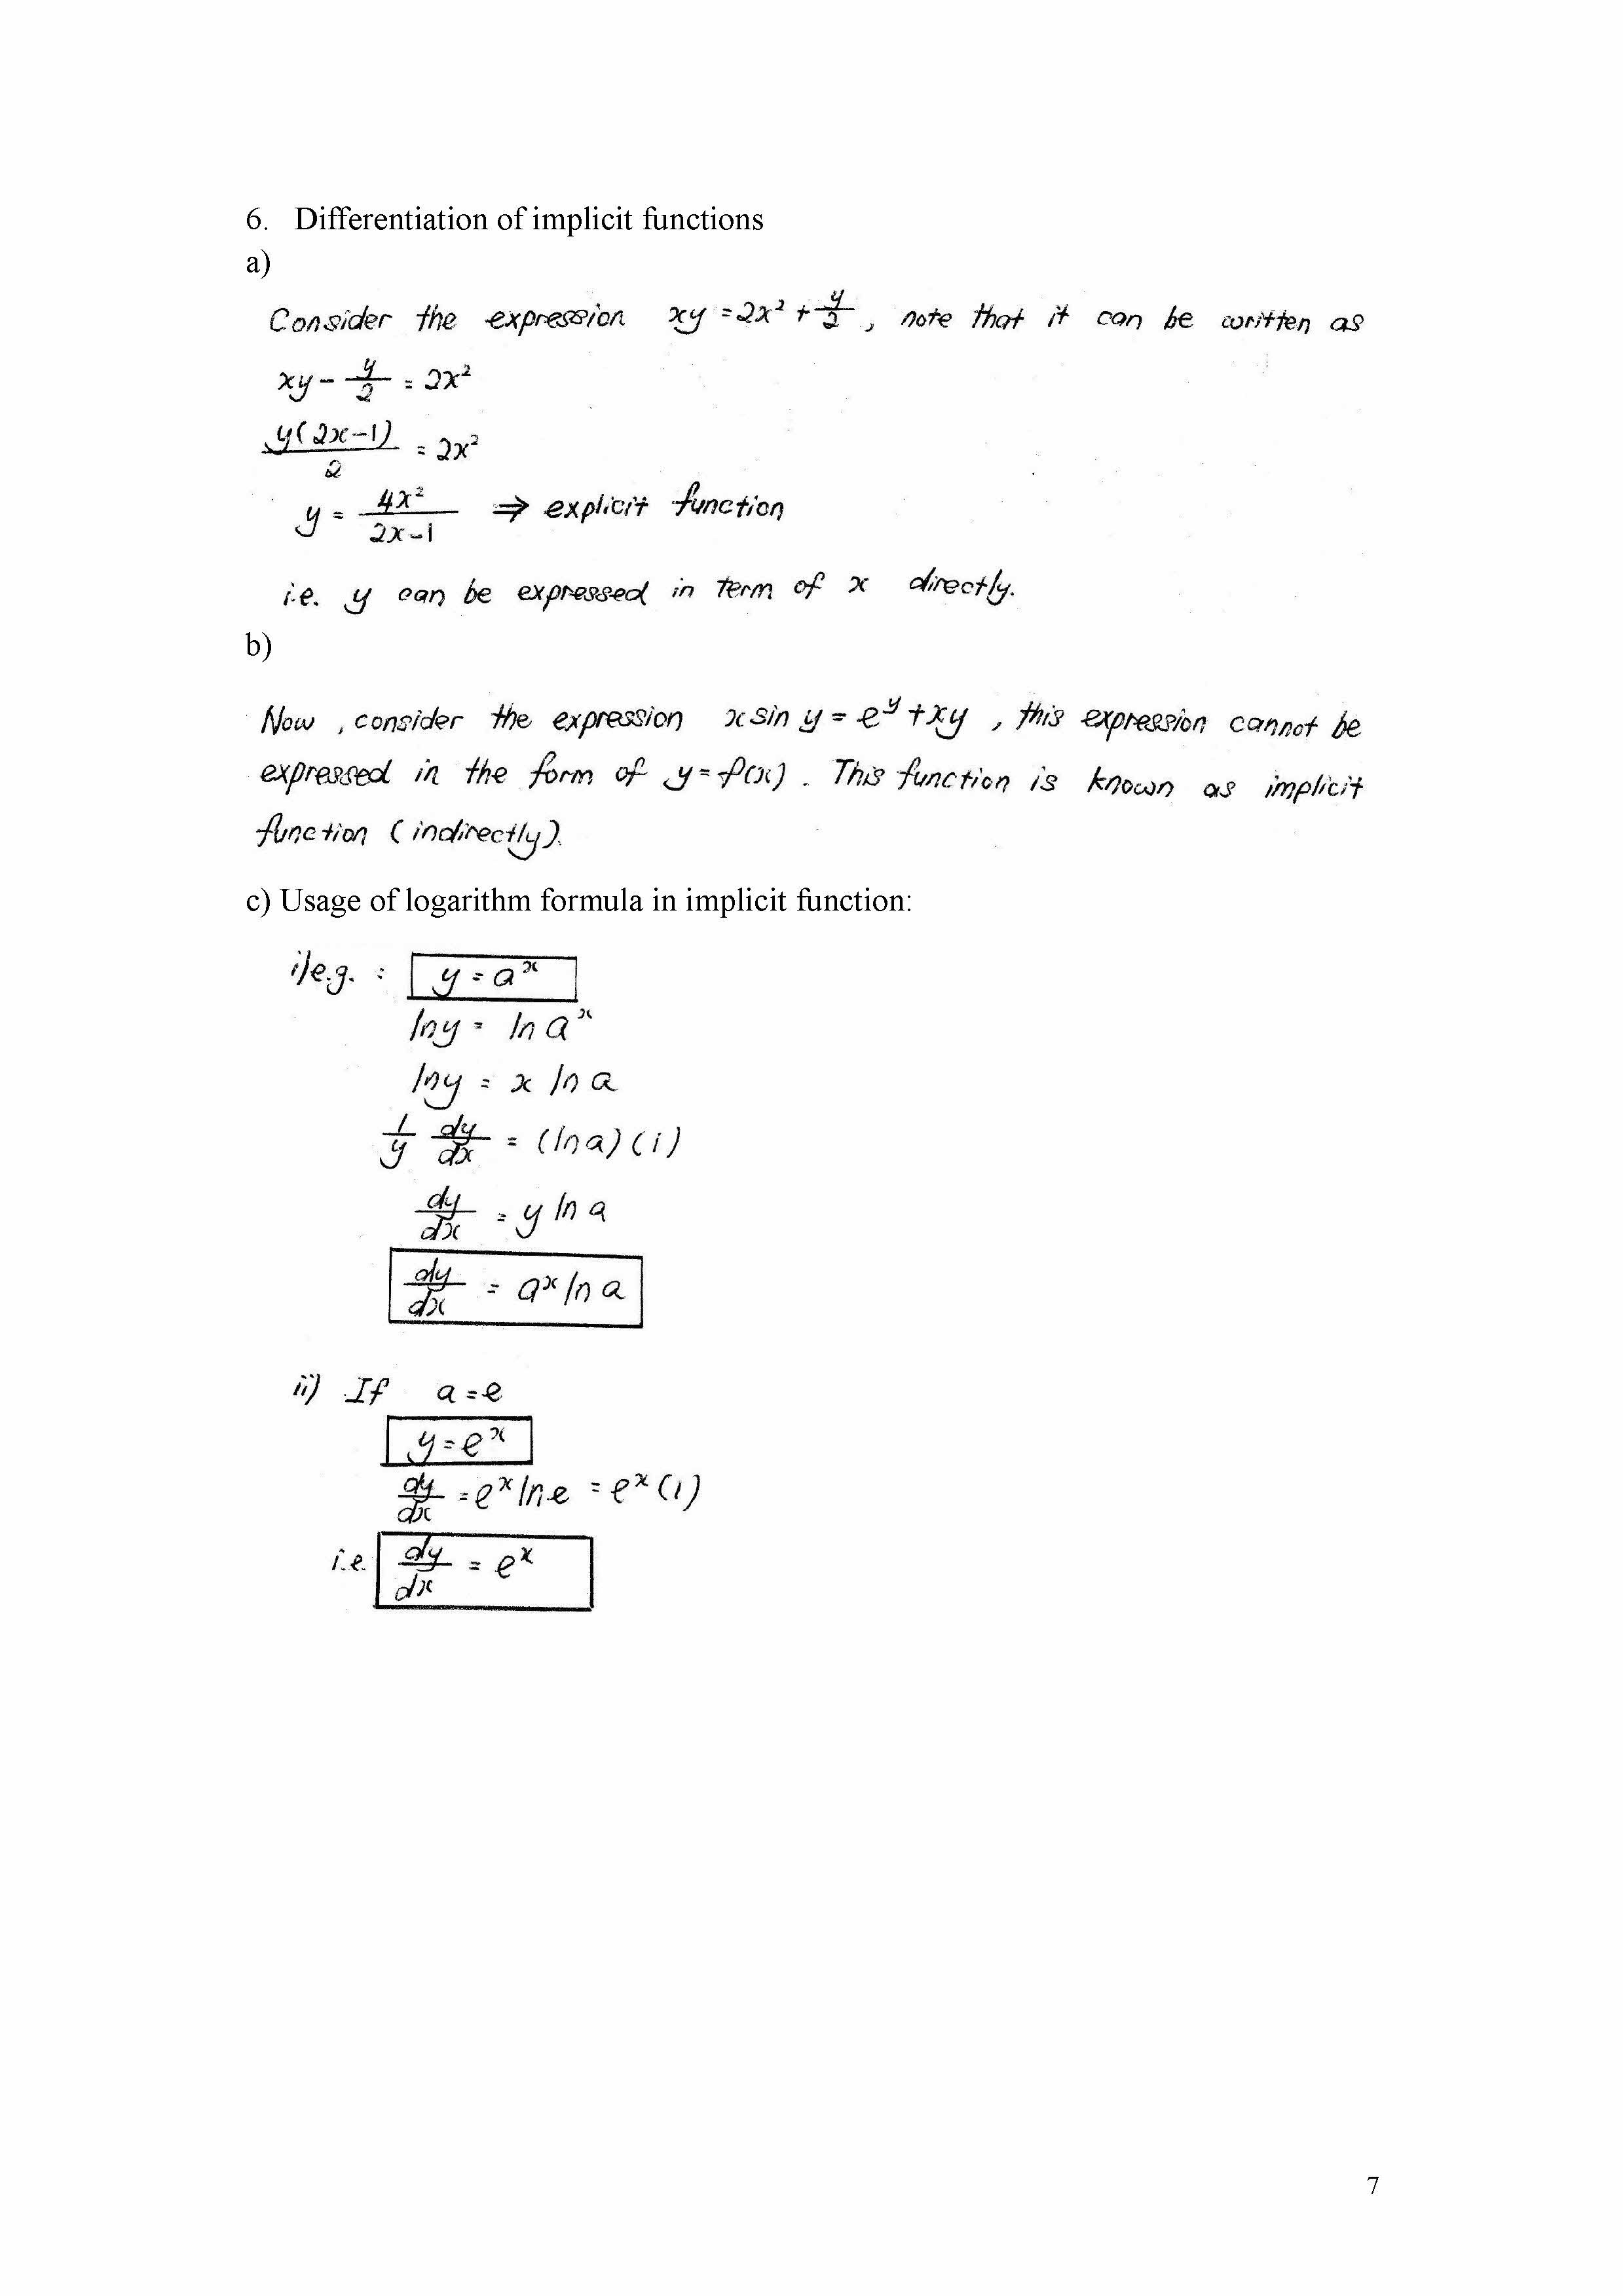 6. Differentiation of implicit functions
a)
Consider the expression xy = 2x² + y/2, note that it can be written as
xy - y/2 = 2x²
y(2x-1)/2 = 2x²
y = 4x²/(2x-1) ⇒ explicit function
i.e. y can be expressed in term of x directly.
b)
Now, consider the expression x sin y = e^y + xy, this expression cannot be
expressed in the form of y = f(x). This function is known as implicit
function (indirectly).
c) Usage of logarithm formula in implicit function:
i) e.g. : y = a^x
ln y = ln a^x
ln y = x ln a
1/y dy/dx = (ln a)(1)
dy/dx = y ln a
dy/dx = a^x ln a
ii) If a = e
y = e^x
dy/dx = e^x ln e = e^x (1)
i.e. dy/dx = e^x
7